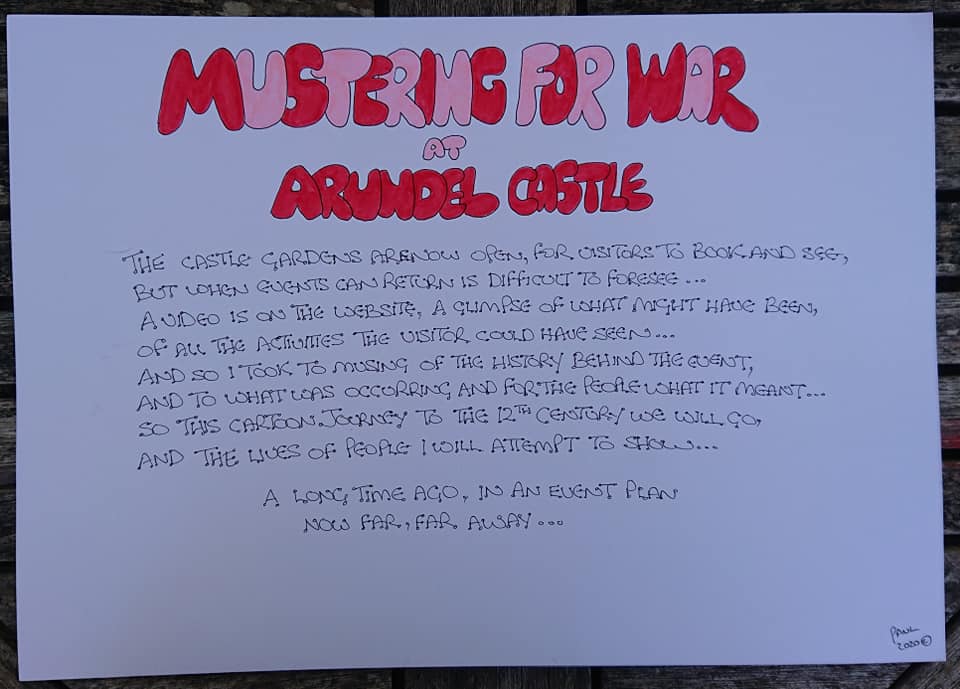 MUSTERING FOR WAR
AT
ARUNDEL CASTLE
THE CASTLE GARDENS ARE NOW OPEN, FOR VISITORS TO BOOK AND SEE,
BUT WHEN EVENTS CAN RETURN IS DIFFICULT TO FORESEE...
A VIDEO IS ON THE WEBSITE, A GLIMPSE OF WHAT MIGHT HAVE BEEN,
OF ALL THE ACTIVITIES THE VISITOR COULD HAVE SEEN...
AND SO I TOOK TO MUSING OF THE HISTORY BEHIND THE EVENT,
AND TO WHAT WAS OCCURRING AND FOR THE PEOPLE WHAT IT MEANT...
SO THIS CARTOON JOURNEY TO THE 12TH CENTURY WE WILL GO,
AND THE LIVES OF PEOPLE I WILL ATTEMPT TO SHOW...
A LONG TIME AGO, IN AN EVENT PLAN
NOW FAR, FAR AWAY...
PAUL
2020©